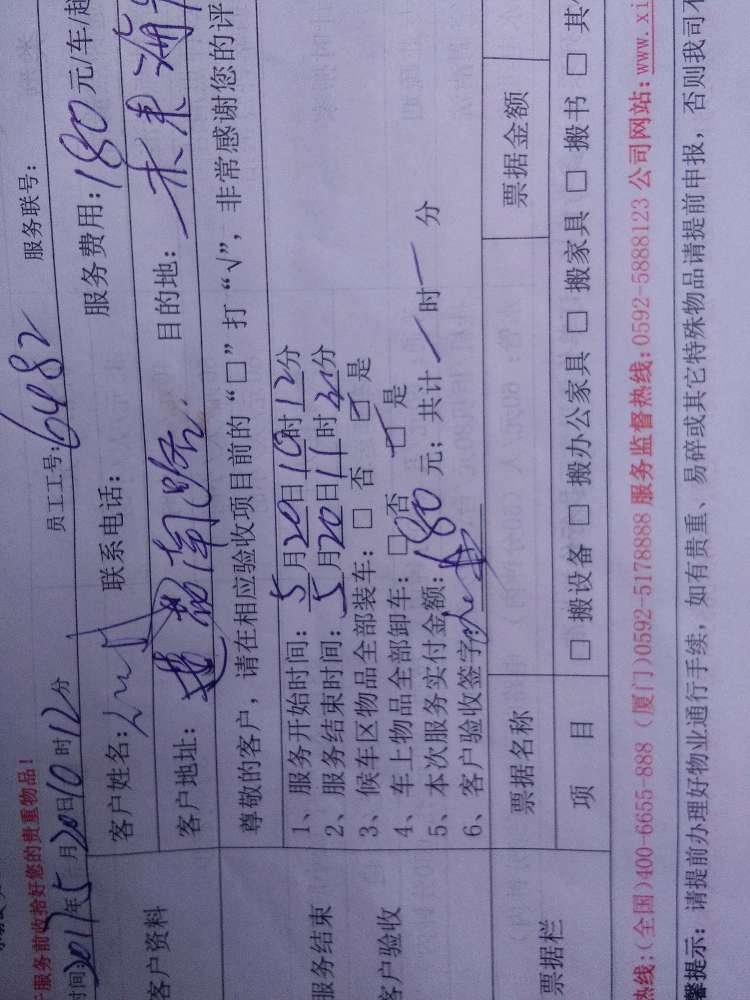 服务前收拾好您的贵重物品!
时间:2017年5月20日10时12分 员工工号:6482 服务联号:
客户资料
客户姓名: 联系电话: 服务费用:180元/车/趟
客户地址: 南路 目的地:未来海
尊敬的客户，请在相应验收项目前的“□”打“√”，非常感谢您的评
服务结束
客户验收
1、服务开始时间:5月20日10时12分
2、服务结束时间:5月20日11时2分
3、候车区物品全部装车:□否 □是
4、车上物品全部卸车:□否 □是
5、本次服务实付金额:180元；共计 时 分
6、客户验收签字
票据栏
票据名称 票据金额
项 目 □搬设备 □搬办公家具 □搬家具 □搬书 □其
热线:(全国)400-6655-888 (厦门)0592-5178888 服务监督热线:0592-5888123 公司网站:www.xi
馨提示: 请提前办理好物业通行手续，如有贵重、易碎或其它特殊物品请提前申报，否则我司不